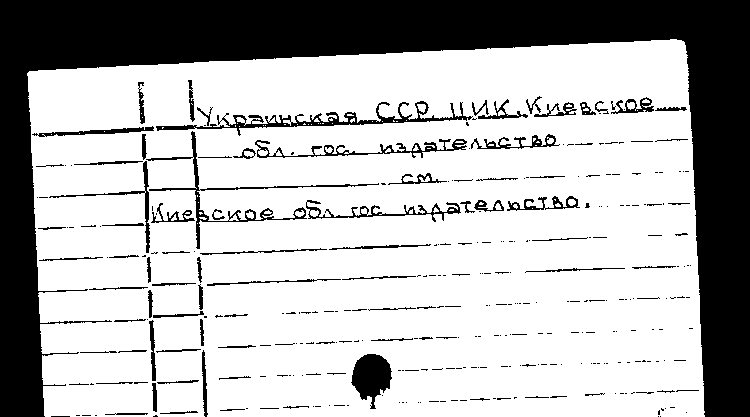 Украинская ССР. ЦИК. Киевское
обл. гос. издательство
см.
Киевское обл. гос издательство.